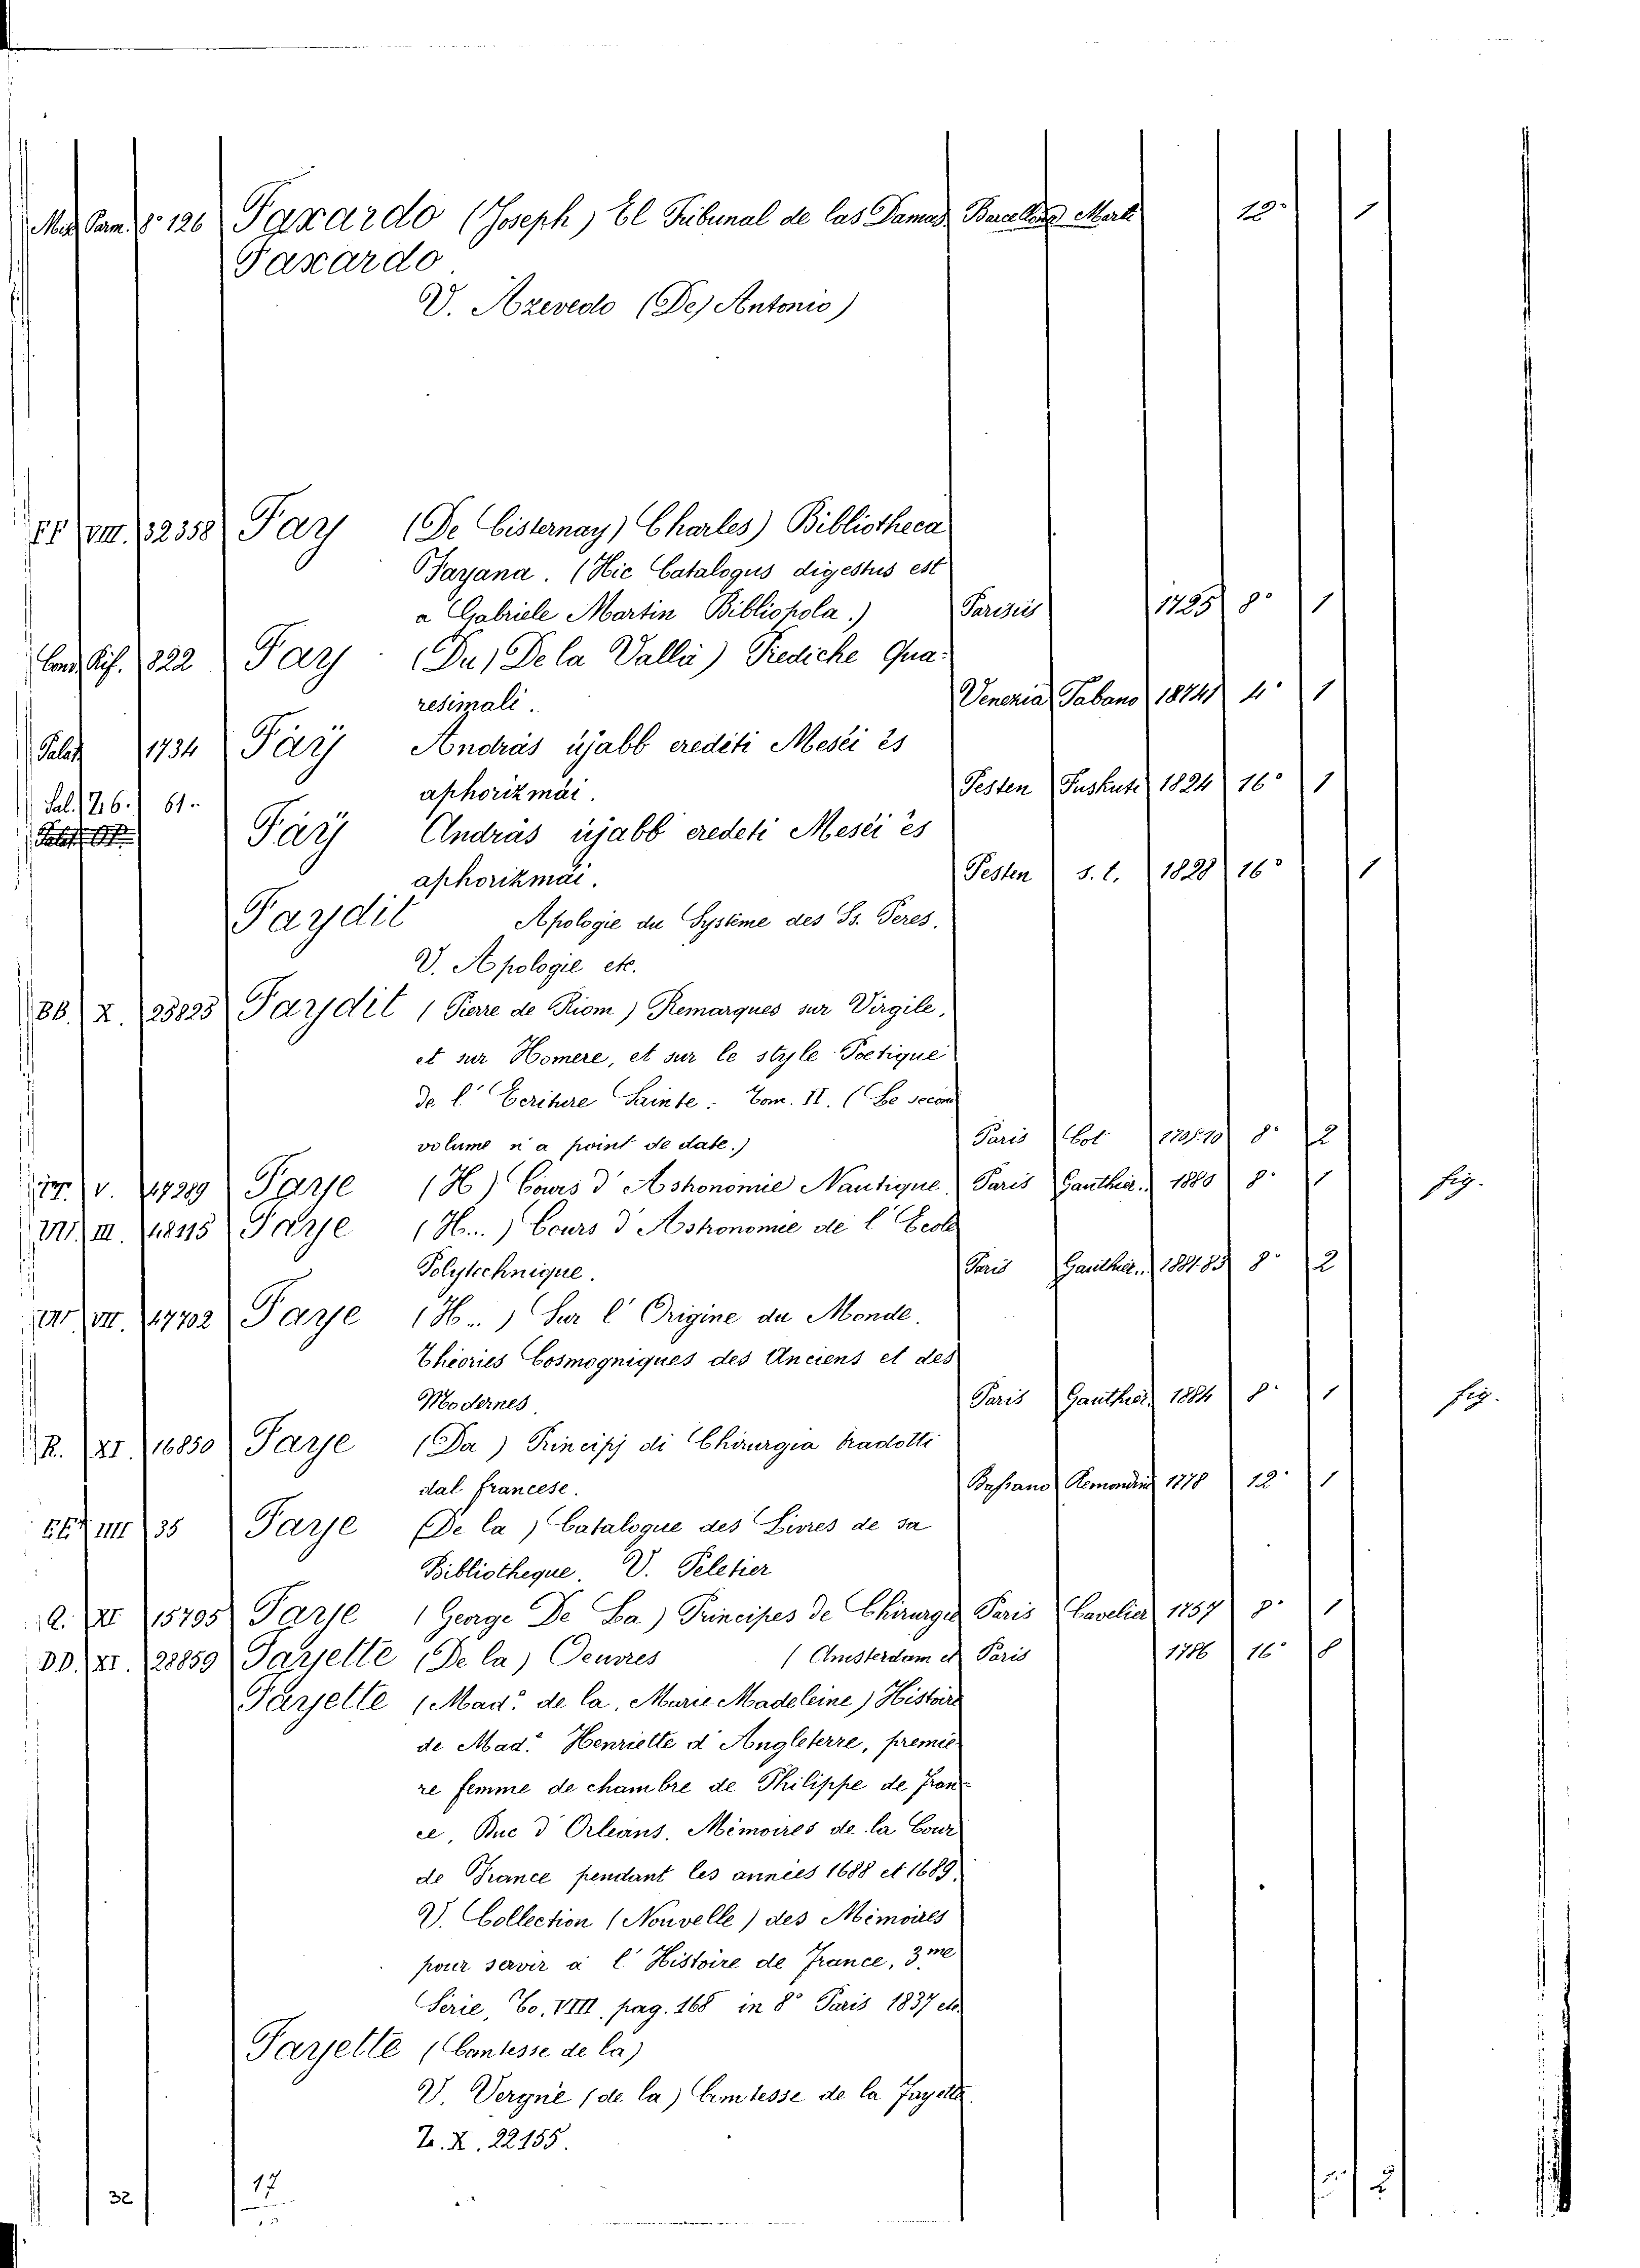 Misc. Parm. 8º 126 Faxardo (Joseph) El Tribunal de las Damas Barcellona Marti 12º 1
Faxardo
V. Azevedo (De) Antonio)
FF VIII. 32358 Fay (De Cisternay) Charles) Bibliotheca
Fayana. (Hic Catalogus digestus est
a Gabriele Martin Bibliopola.) Parisiis 1725 8º 1
822 Fay (Du, De la Vallé) Prediche Qua-
resimali. Venezia 1874 4º 1
Palat 1734 Fäy András újabb erediti Meséi és
aphorizmái. Pesten Fuskuti 1824 16º 1
Pal. 26. 61.
Fäy András újabb eredeti Meséi és
aphorizmái. Pesten s. t. 1828 16º 1
Faydit Apologie du Système des Ss. Peres.
V. Apologie etc.
BB. X. 25825 Faydit (Pierre de Riom) Remarques sur Virgile,
et sur Homere, et sur le style Poetique
de l' Ecriture Sainte. Tom. II. (Le secon
volume n'a point de date.) Paris Cot 1705.10 8º 2
V. 47289 Faye (H) Cours d' Astronomie Nautique Paris Gauthier. 1880 8º 1 fig.
MM. III. 48115 Faye (H..) Cours d' Astronomie de l' Ecole
Polytechnique. Paris Gauthier.. 1881.83 8º 2
VII. 47702 Faye (H..) Sur l' Origine du Monde.
Théories Cosmogniques des Anciens et des
Modernes. Paris Gauthier 1884 8º 1 fig.
R. XI. 16850 Faye (Da) Principj di Chirurgia tradotti
dal francese. Bassano Remondini 1778 12º 1
EE IIII 35 Faye (De la) Catalogue des Livres de sa
Bibliotheque. V. Peletier
Q. XI 15795 Faye (George De La) Principes de Chirurgie Paris Cavelier 1757 8º 1
DD. XI. 28859 Fayette (De la) Oeuvres (Amsterdam et Paris 1786 16º 8
Fayette (Mad.e de la, Marie Madeleine) Histoire
de Mad.e Henriette d' Angleterre, premiè-
re femme de chambre de Philippe de Fran-
ce, Duc d' Orleans. Mémoires de la Cour
de France pendant les années 1688 et 1689.
V. Collection (Nouvelle) des Mémoires
pour servir à l' Histoire de France, 3.me
Série, To. VIII. pag. 168 in 8º Paris 1837 etc.
Fayette (Contesse de la)
V. Vergne (de la) Comtesse de la Fayette.
Z. X. 22155.
32 17